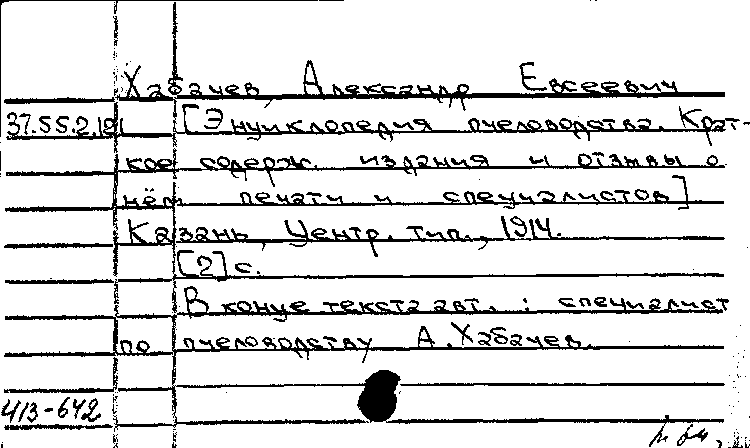 Хабачев, Александр Евсеевич
37.55.2.12 [Энциклопедия пчеловодства. Крат-
кое содерж. издания и отзывы о
нём печати и специалистов]
Казань, Центр. тип., 1914.
[2] с.
В конце текста авт.: специалист
по пчеловодству А. Хабачев.
413-642